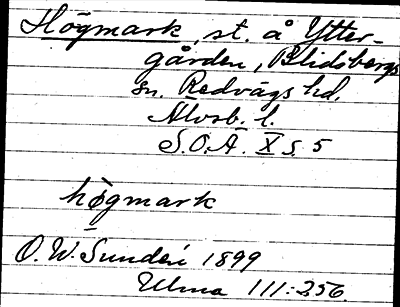 Högmark, st. å Ytter-
gården, Blidsbergs
sn. Redvägs hd.
Älvsb. l.
S.O.Ä. X s. 5
högmark
O. W. Sundén 1899
Ulma 111:256